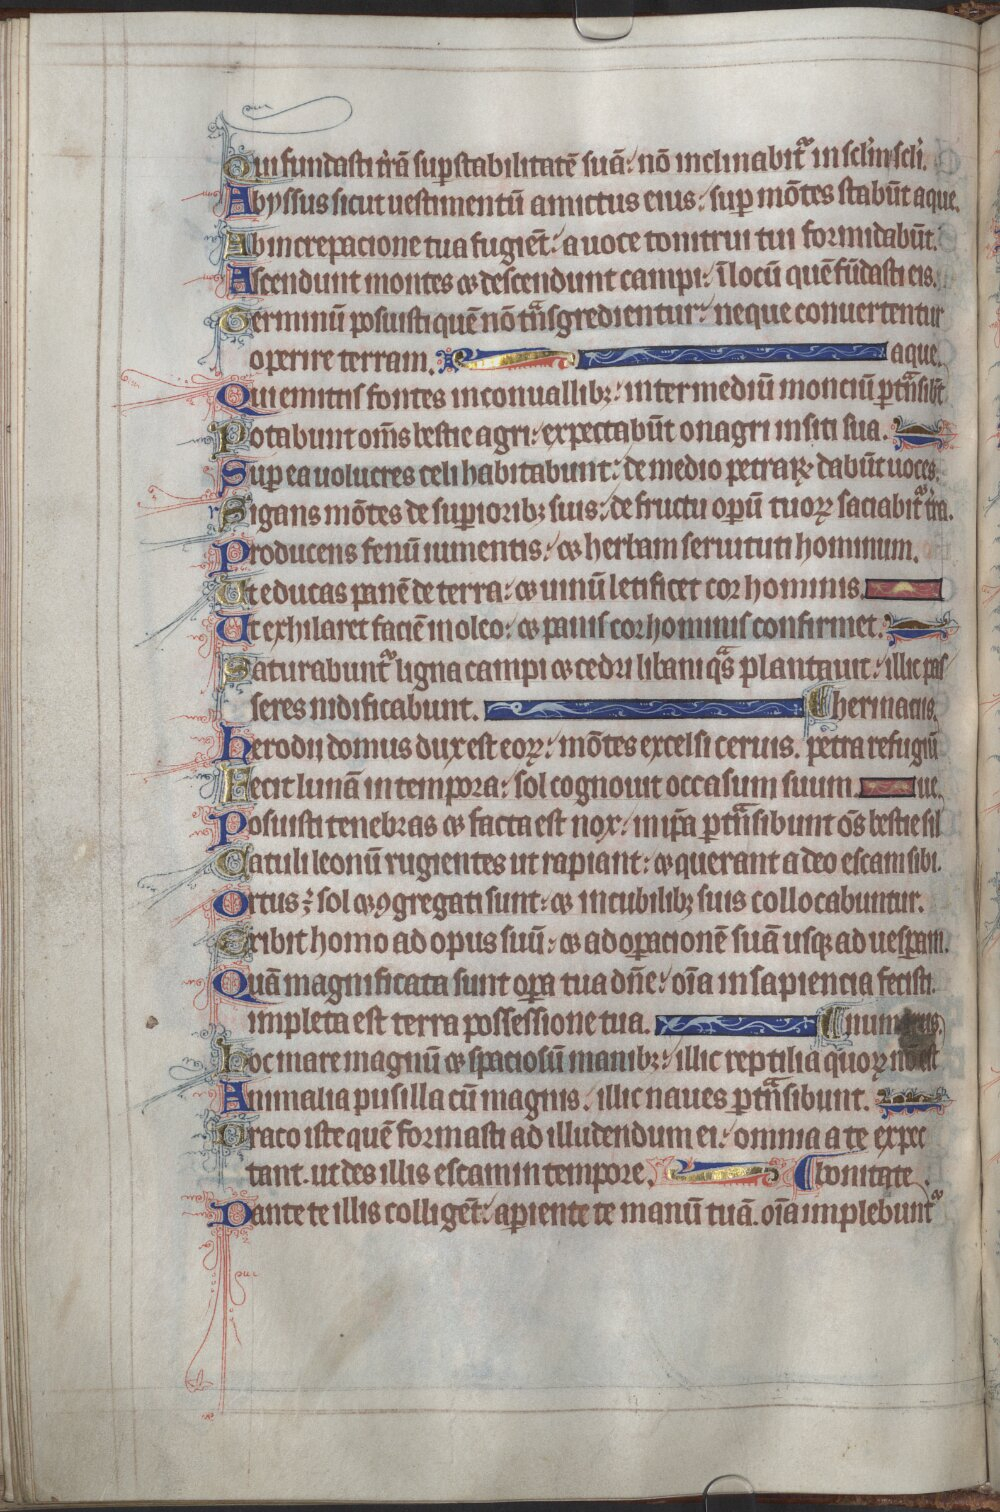 Qui fundasti t̄rā sup stabilitatē suā: nō inclinabit᷑ in sc̄lm sc̄li.
Abyssus sicut uestimentū amictus eius: sup mōtes stabūt aque.
Ab increpacione tua fugiēt: a uoce tonitrui tui formidabūt.
Ascendunt montes ⁊ descendunt campi: ī locū quē fūdasti eis.
Terminū posuisti quē nō tᷓnsgredientur: neque conuertentur
operire terram. aque.
Qui emittis fontes in conuallibꝫ: inter mediū monciū ꝑtᷓnsibt̄
Potabunt om̄s bestie agri: expectabūt onagri in siti sua.
Sup ea uolucres celi habitabunt: de medio petraꝝ dabūt uoces.
Rigans mōtes de supioribꝫ suis: de fructu opū tuoꝝ saciabit᷑ t̄ra.
Producens fenū iumentis: ⁊ herbam seruituti hominum.
Ut educas panē de terra: ⁊ uinū letificet cor hominis.
Ut exhilaret faciē in oleo: ⁊ panis cor hominis confirmet.
Saturabunt᷑ ligna campi ⁊ cedri libani qᷓs plantauit: illic pas
seres nidificabunt. Cherinacijs.
Herodij domus dux est eoꝝ: mōtes excelsi ceruis. petra refugiū
Fecit lunā in tempora: sol cognouit occasum suum. ue.
Posuisti tenebras ⁊ facta est nox: in ip̄a ꝑtᷓnsibunt ōs bestie sil
Catuli leonū rugientes ut rapiant: ⁊ querant a deo escam sibi.
Ortus ē sol ⁊ ꝯgregati sunt: ⁊ in cubilibꝫ suis collocabuntur.
Exibit homo ad opus suū: ⁊ ad opacionē suā usqꝫ ad uespam.
Quā magnificata sunt opa tua dn̄e: oīa in sapiencia fecisti.
impleta est terra possessione tua. numerus.
Hoc mare magnū ⁊ spaciosū manibꝫ: illic reptilia quoꝝ nō est
Animalia pusilla cū magnis. illic naues ꝑtᷓnsibunt.
Draco iste quē formasti ad illudendum ei: omnia a te expec
tant. ut des illis escam in tempore. bonitate
Dante te illis colligēt: apiente te manū tuā. oīa implebunt᷑